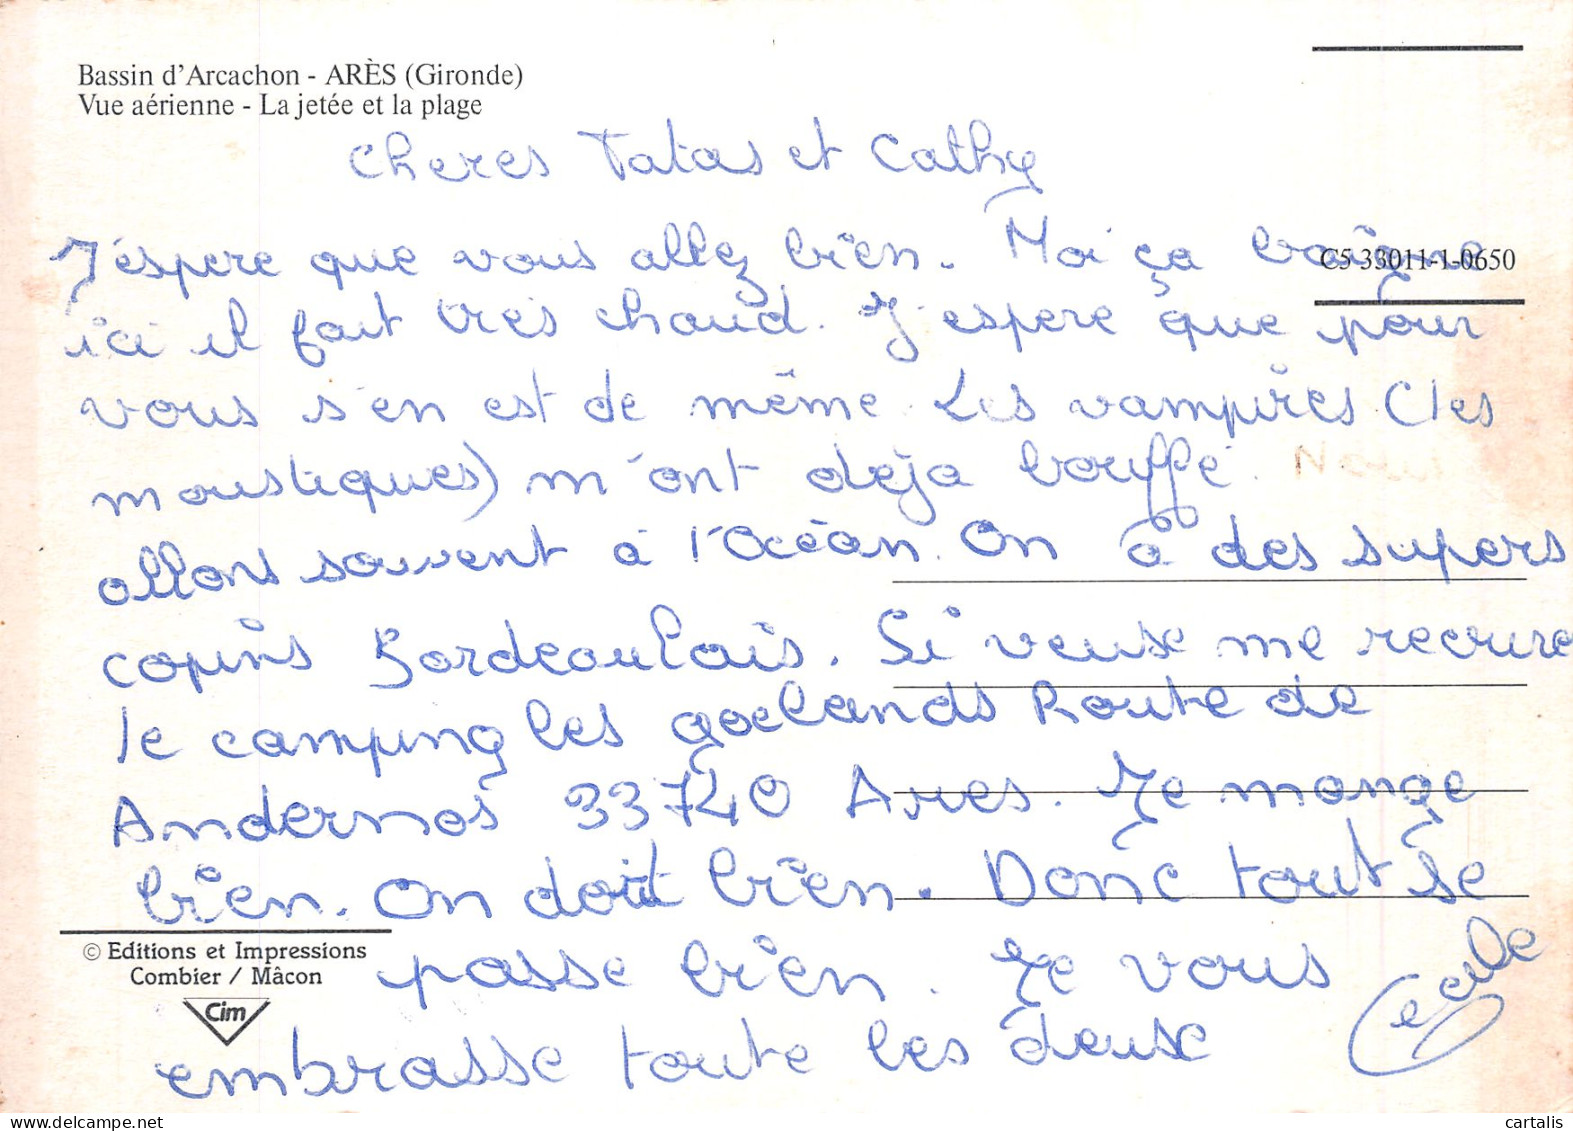 Bassin d'Arcachon - ARÈS (Gironde)
Vue aérienne - La jetée et la plage
Cheres Tatas et Cathy
J'éspere que vous allez bien. Moi ça baigne
C5 33011-1-0650
ici il fait très chaud. J'espere que pour
vous s'en est de même. Les vampires (les
moustiques) m'ont deja bouffé. Nous
allons souvent à l'Océan. On a des supers
copins Bordeaulais. Si veuse me recrire
le camping les goelands Route de
Andernos 33740 Ares. Je mange
bien. On dort bien. Donc tout se
© Editions et Impressions
Combier / Mâcon
Cim
passe bien. Je vous
embrasse toute les deux
Cecile
cartalis